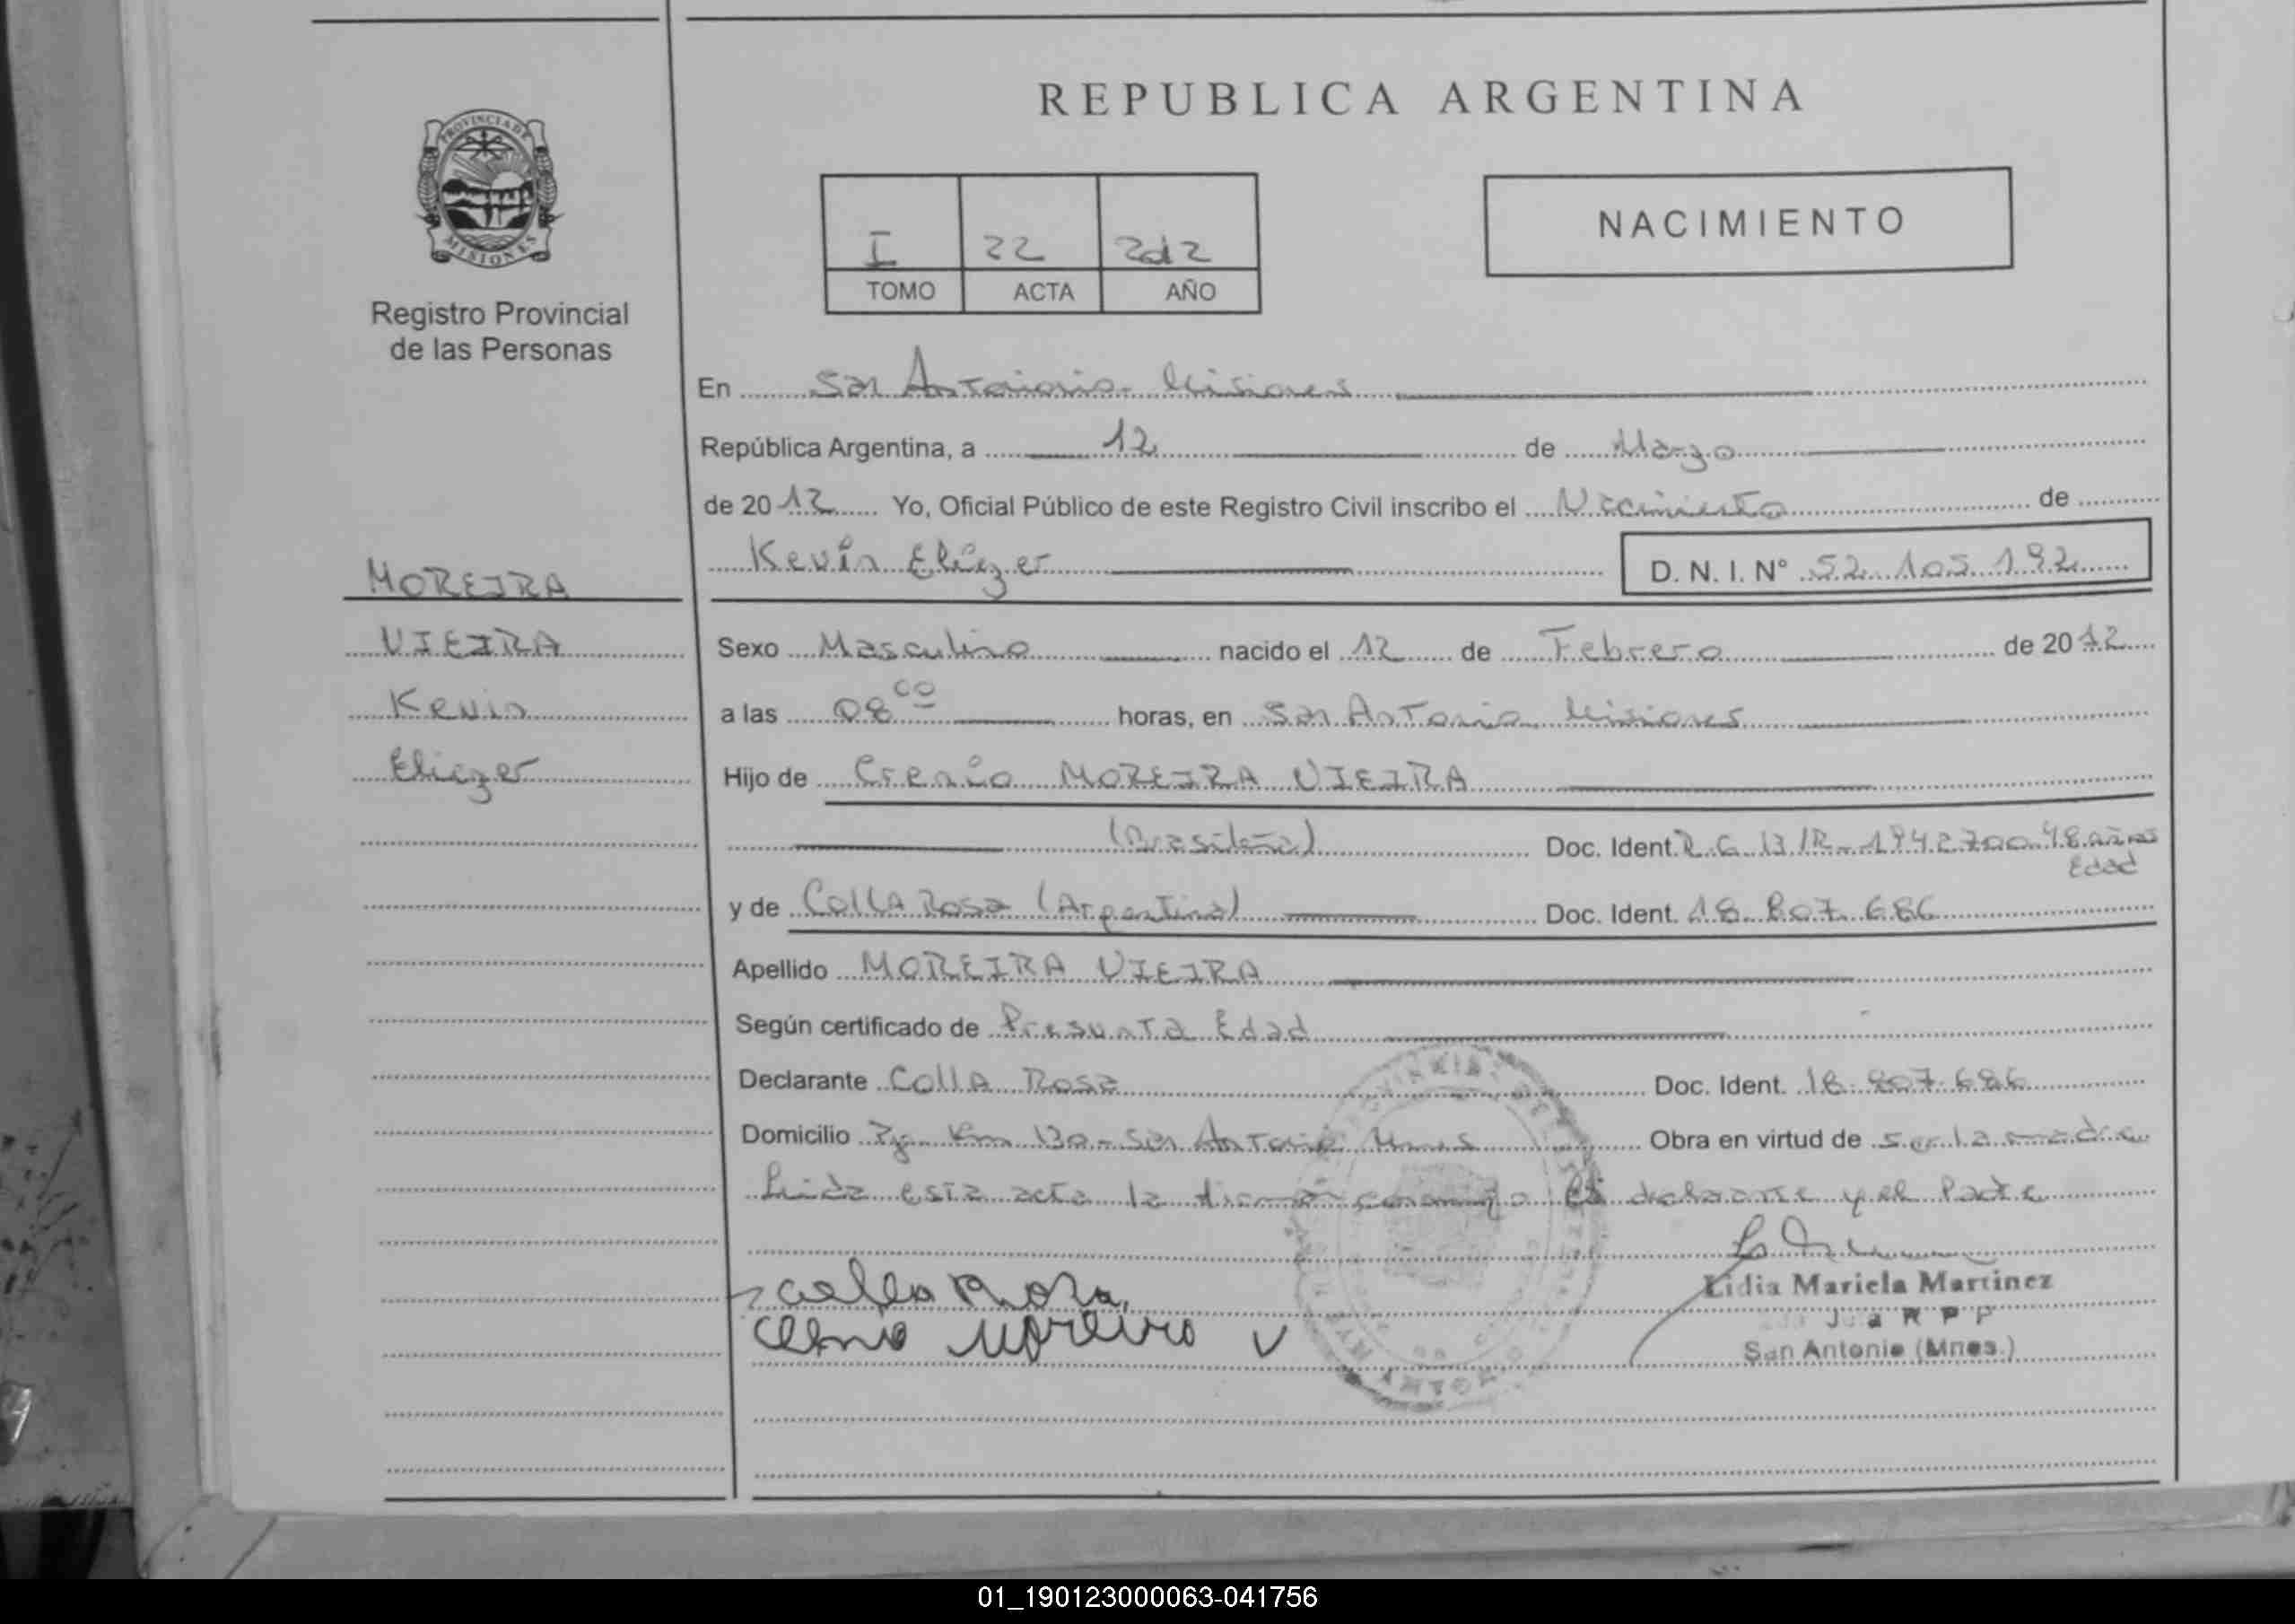 REPUBLICA ARGENTINA
PROVINCIA DE
MISIONES
Registro Provincial
de las Personas
I 22 2012
TOMO ACTA AÑO
NACIMIENTO
En San Antonio Misiones
República Argentina, a 12 de Marzo
de 2012 Yo, Oficial Público de este Registro Civil inscribo el Nacimiento de
Kevin Eliezer D. N. I. N° 52.105.192
MOREIRA
VIEIRA
Kevin
Eliezer
Sexo Masculino nacido el 12 de Febrero de 2012
a las 08 00 horas, en San Antonio Misiones
Hijo de MOREIRA VIEIRA
Doc. Ident. 48 años
Edad
y de Colla Rosa (Argentina) Doc. Ident. 18.807.686
Apellido MOREIRA VIEIRA
Según certificado de Presunta Edad
Declarante Colla Rosa Doc. Ident. 18.807.686
Domicilio Km 130 - San Antonio Mnes Obra en virtud de ser la madre
Leida esta acta la declarante y el Padre
Colla Rosa
Moreira V
Lidia Mariela Martinez
R P P
San Antonio (Mnes.)
01_190123000063-041756